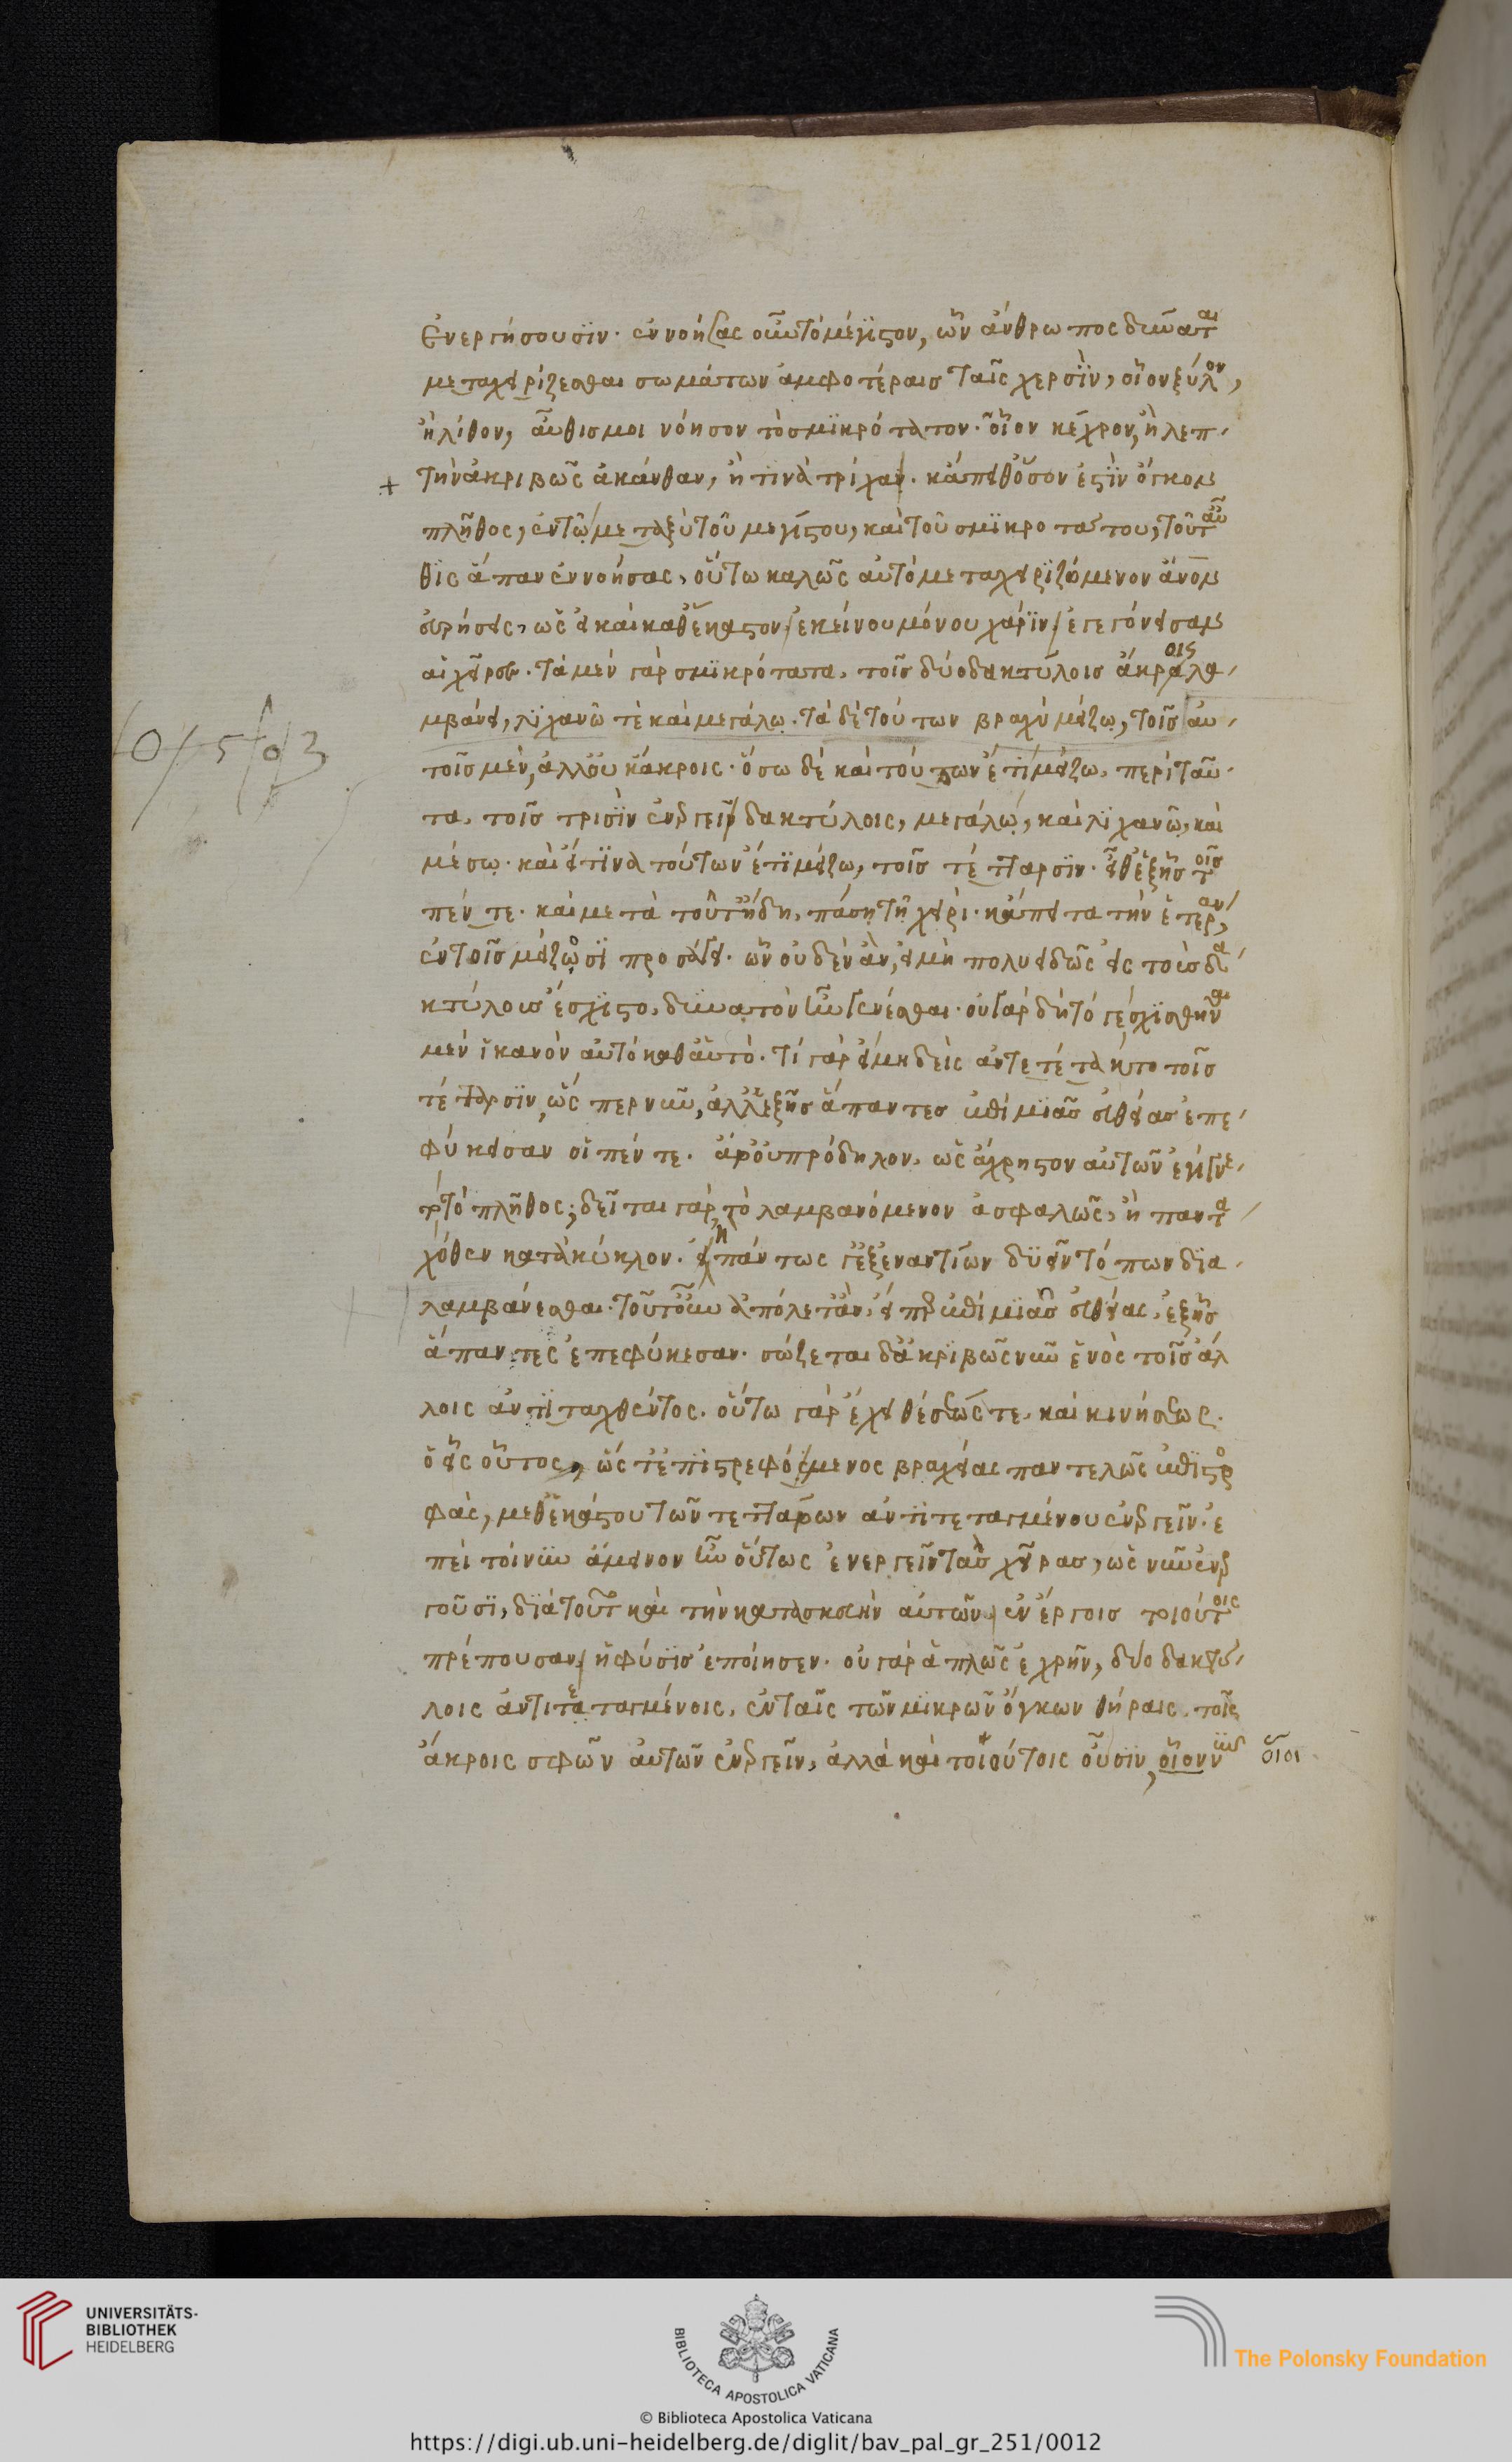 Ἐνεργήσουσϊν. ἐννοήσας οὖν τὸ μέγιστον, ὧν ἄνθρωπος δύναται
μεταχειρίζεσθαι σωμάτων ἀμφοτέραις ταῖς χερσὶν, οἷον ξύλον,
ἢ λίθον, αὖθίς μοι νόησον τὸ σμϊκρότατον. οἷον κέγχρον, ἢ λεπ
τὴν ἀκριβῶς ἄκανθαν, ἤ τινα τρίχαν. κἄπειθ' ὅσον ἐστὶν ὄγκων
πλῆθος, ἐν τῷ μεταξὺ τοῦ μεγίστου, καὶ τοῦ σμϊκροτάτου, τοῦτ' αὖ
θϊς ἅπαν ἐννοήσας, οὕτω καλῶς αὐτὸ μεταχειριζόμενον ἄνον
εὑρήσεις, ὡς εἰ καὶ καθ' ἕκαστον ἐκείνου μόνου χάριν ἐγεγόνεισαν
αἱ χεῖρες. τὰ μὲν γὰρ σμϊκρότατα, τοῖς δύο δακτύλοις ἄκροις λα
μβάνει, λϊχανῷ τὲ καὶ μεγάλῳ. τὰ δὲ τούτων βραχὺ μείζω, τοῖς αὐ
τοῖς μὲν, ἀλλ' οὐκ ἄκροις. ὅσω δὲ καὶ τούτων ἔτϊ μείζω, περὶ ταῦ
τα, τοῖς τρισὶν ἐνεργεῖν δακτύλοις, μεγάλῳ, καὶ λϊχανῷ, καὶ
μέσῳ. καὶ εἴ τϊνα τούτων ἔτϊ μείζω, τοῖς τέτταρσϊν. εἶθ' ἑξῆς τοῖς
πέντε. καὶ μετὰ τοῦτ' ἤδη, πάσῃ τῇ χειρὶ. κἄπειτα τὴν ἑτέραν
ἐν τοῖς μείζοσϊ προσάγει. ὧν οὐδὲν ἂν, εἰ μὴ πολυειδῶς εἰς τοὺς δα
κτύλους ἔσχϊστο, δυνατὸν ἦν γενέσθαι. οὐ γὰρ δὴ τό γε σχϊσθῆναι
μὲν ἱκανὸν αὐτὸ καθ' αὑτὸ. τί γὰρ εἰ μηδεὶς ἀντετέτακτο τοῖς
τέτταρσϊν, ὥσπερ νῦν, ἀλλ' ἑξῆς ἅπαντες ἐπὶ μϊᾶς εὐθείας ἐπε
φύκεισαν οἱ πέντε. ἆρ' οὐ πρόδηλον, ὡς ἄχρηστον αὐτῶν ἐγίγνε
το τὸ πλῆθος; δεῖται γὰρ τὸ λαμβανόμενον ἀσφαλῶς, ἢ παντα
χόθεν κατὰ κύκλον. ἢ πάντως γ' ἐξ ἐναντίων δϋεῖν τόπων δϊα
λαμβάνεσθαι. τοῦτ' οὖν ἀπόλετ' ἂν, εἴπερ ἐπὶ μϊᾶς εὐθείας, ἑξῆς
ἅπαντες ἐπεφύκεσαν. σώζεται δ' ἀκριβῶς νῦν ἑνὸς τοῖς ἄλ
λοις ἀντϊταχθέντος. οὕτω γὰρ ἔχει θέσεώς τε, καὶ κινήσεως.
ὁ εἷς οὗτος, ὥς τ' ἐπϊστρεφόμενος βραχείας παντελῶς ἐπϊστρο
φὰς, μεθ' ἑκάστου τῶν τεττάρων ἀντϊτεταγμένου ἐνεργεῖν. ἐ
πεὶ τοίνυν ἄμεινον ἦν οὕτως ἐνεργεῖν τὰς χεῖρας, ὡς νῦν ἐνερ
γοῦσϊ, δϊὰ τοῦτο καὶ τὴν κατασκευὴν αὐτῶν ἐν ἔργοις τοιούτοις
πρέπουσαν ἡ φύσϊς ἐποίησεν. οὐ γὰρ ἁπλῶς ἐχρῆν, δύο δακτύ
λοις ἀντιτεταγμένοις, ἐν ταῖς τῶν μϊκρῶν ὄγκων θήραις, τοῖς
ἄκροις σφῶν αὐτῶν ἐνεργεῖν, ἀλλὰ καὶ τοιούτοις οὖσϊν, οἷον νῦν οἷοι
UNIVERSITÄTS-
BIBLIOTHEK
HEIDELBERG
BIBLIOTECA APOSTOLICA VATICANA
The Polonsky Foundation
© Biblioteca Apostolica Vaticana
https://digi.ub.uni-heidelberg.de/diglit/bav_pal_gr_251/0012